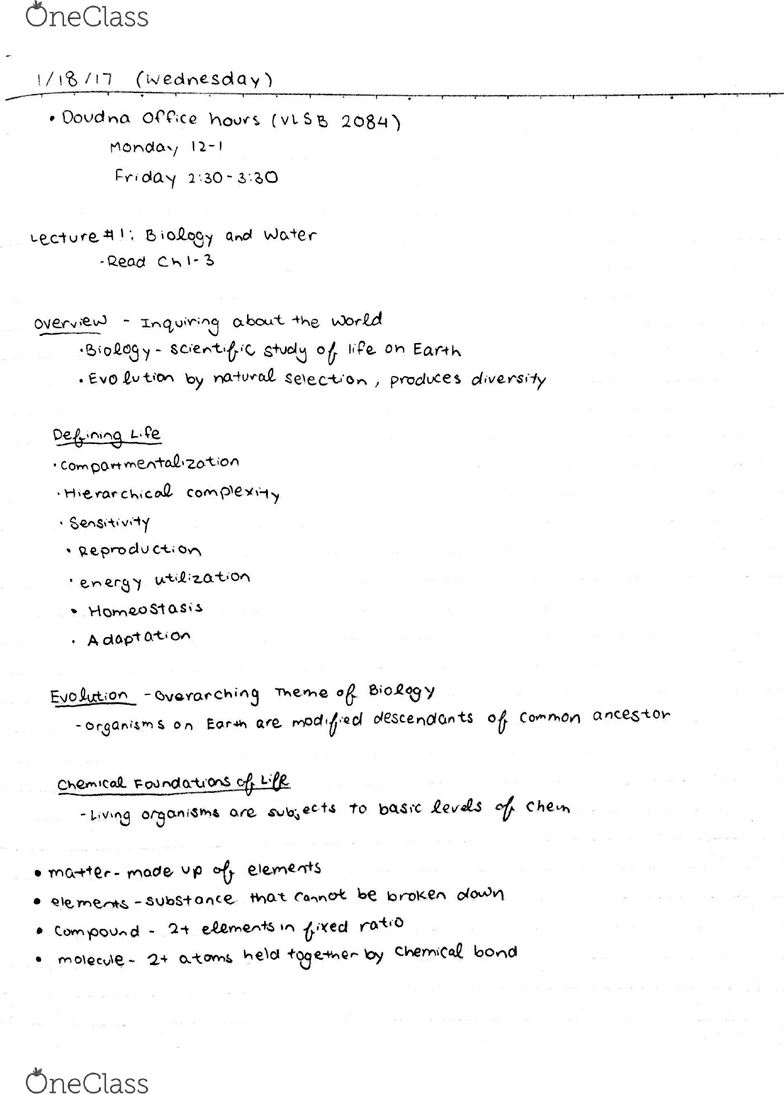 OneClass
1/18/17 (Wednesday)
• Doudna Office hours (VLSB 2084)
Monday 12-1
Friday 2:30-3:30
Lecture #1: Biology and Water
-Read Ch 1-3
Overview - Inquiring about the World
•Biology - scientific study of life on Earth
• Evolution by natural selection, produces diversity
Defining Life
•Compartmentalization
•Hierarchical complexity
• Sensitivity
• Reproduction
• energy utilization
• Homeostasis
• Adaptation
Evolution - Overarching Theme of Biology
-organisms on Earth are modified descendants of common ancestor
Chemical Foundations of Life
-Living organisms are subjects to basic levels of chem
• matter - made up of elements
• elements - substance that cannot be broken down
• Compound - 2+ elements in fixed ratio
• molecule - 2+ atoms held together by Chemical bond
OneClass